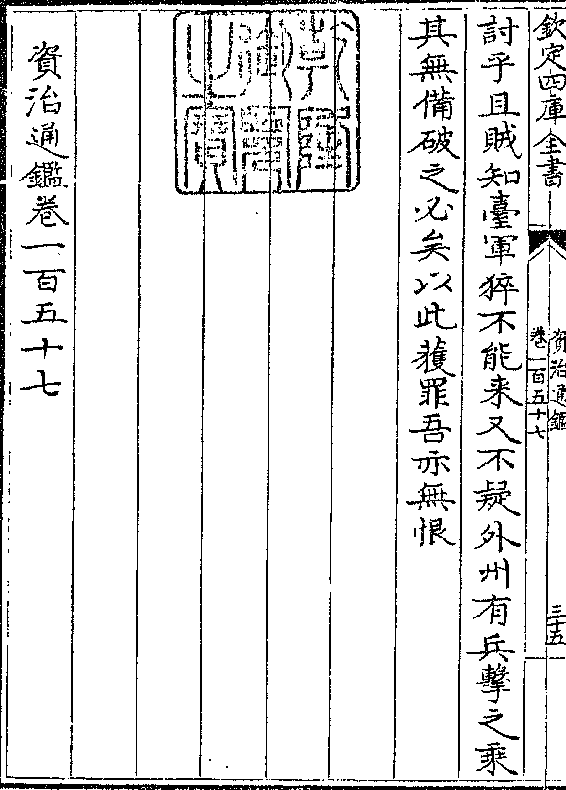 欽定四庫全書
資治通鑑
卷一百五十七
三十五
討乎且賊知臺軍猝不能来又不疑外州有兵擊之乘
其無備破之必矣以此獲罪吾亦無恨
乾隆御覽之寶
資治通鑑卷一百五十七